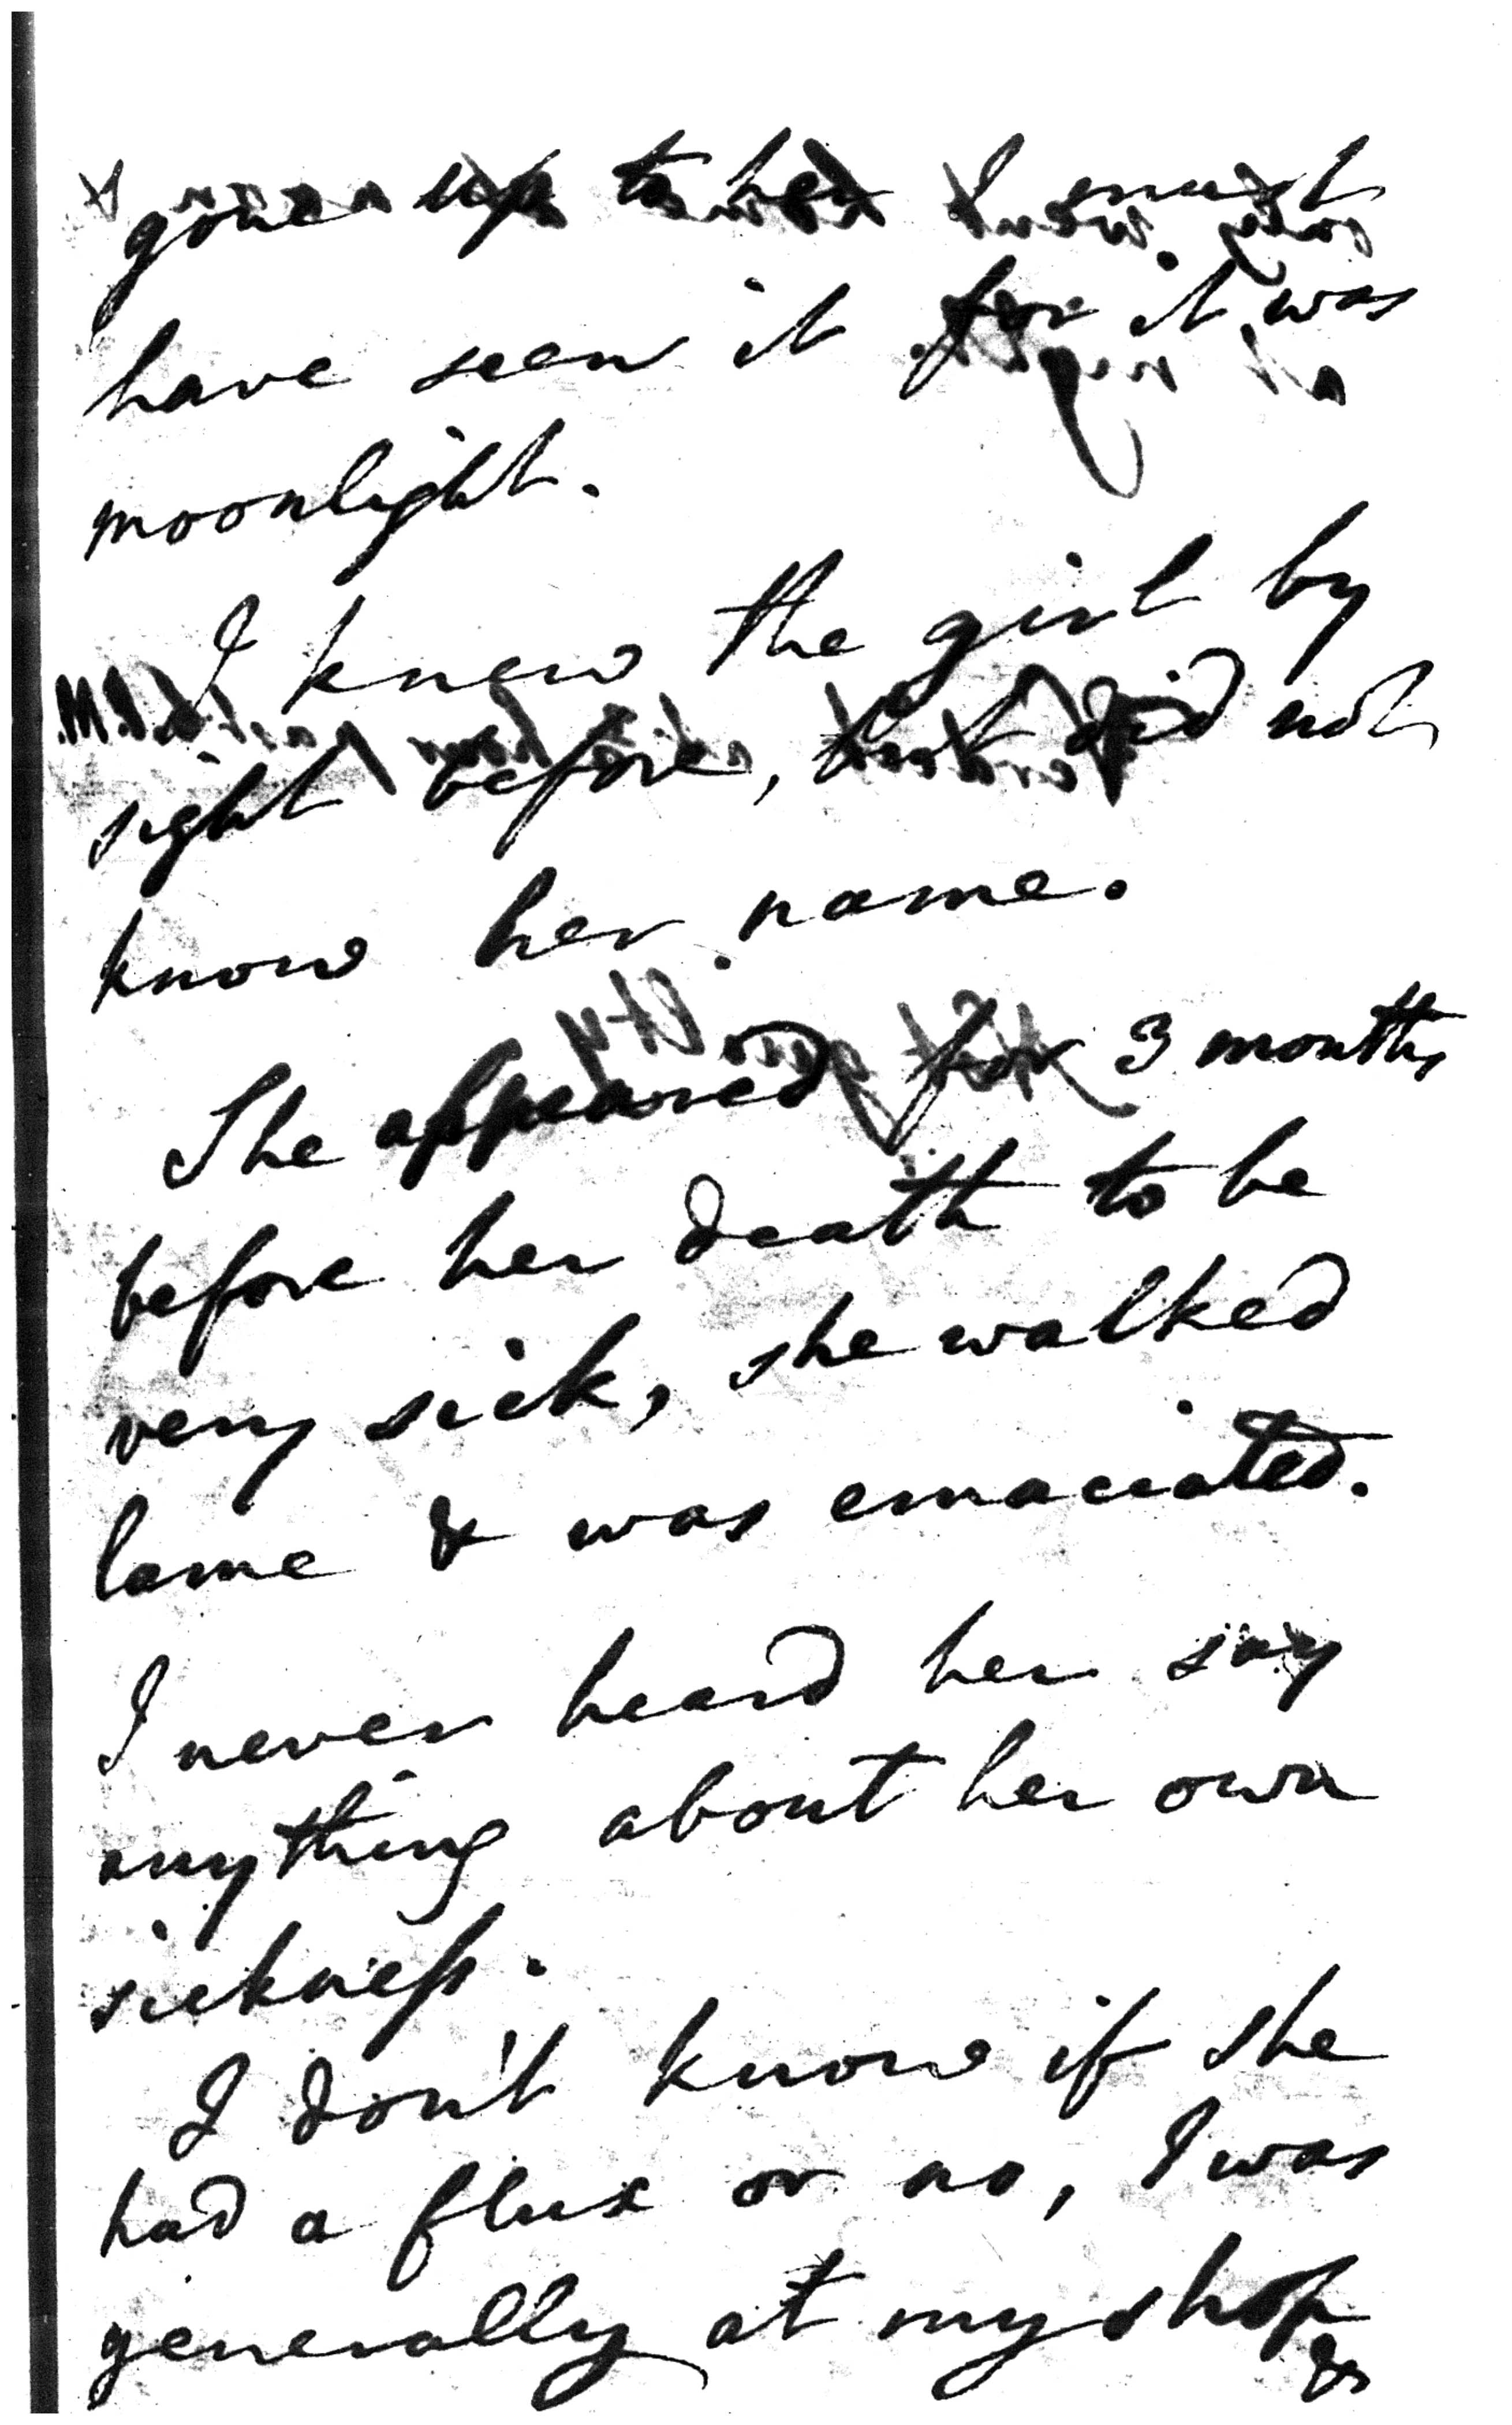 gone up to her I must
have seen it for it was
moonlight.
I knew the girl by
sight before, but did not
know her name.
She appeared for 3 months
before her death to be
very sick, she walked
lame & was emaciated.
I never heard her say
anything about her own
sickness.
I don't know if she
had a flux or no, I was
generally at my shop
&